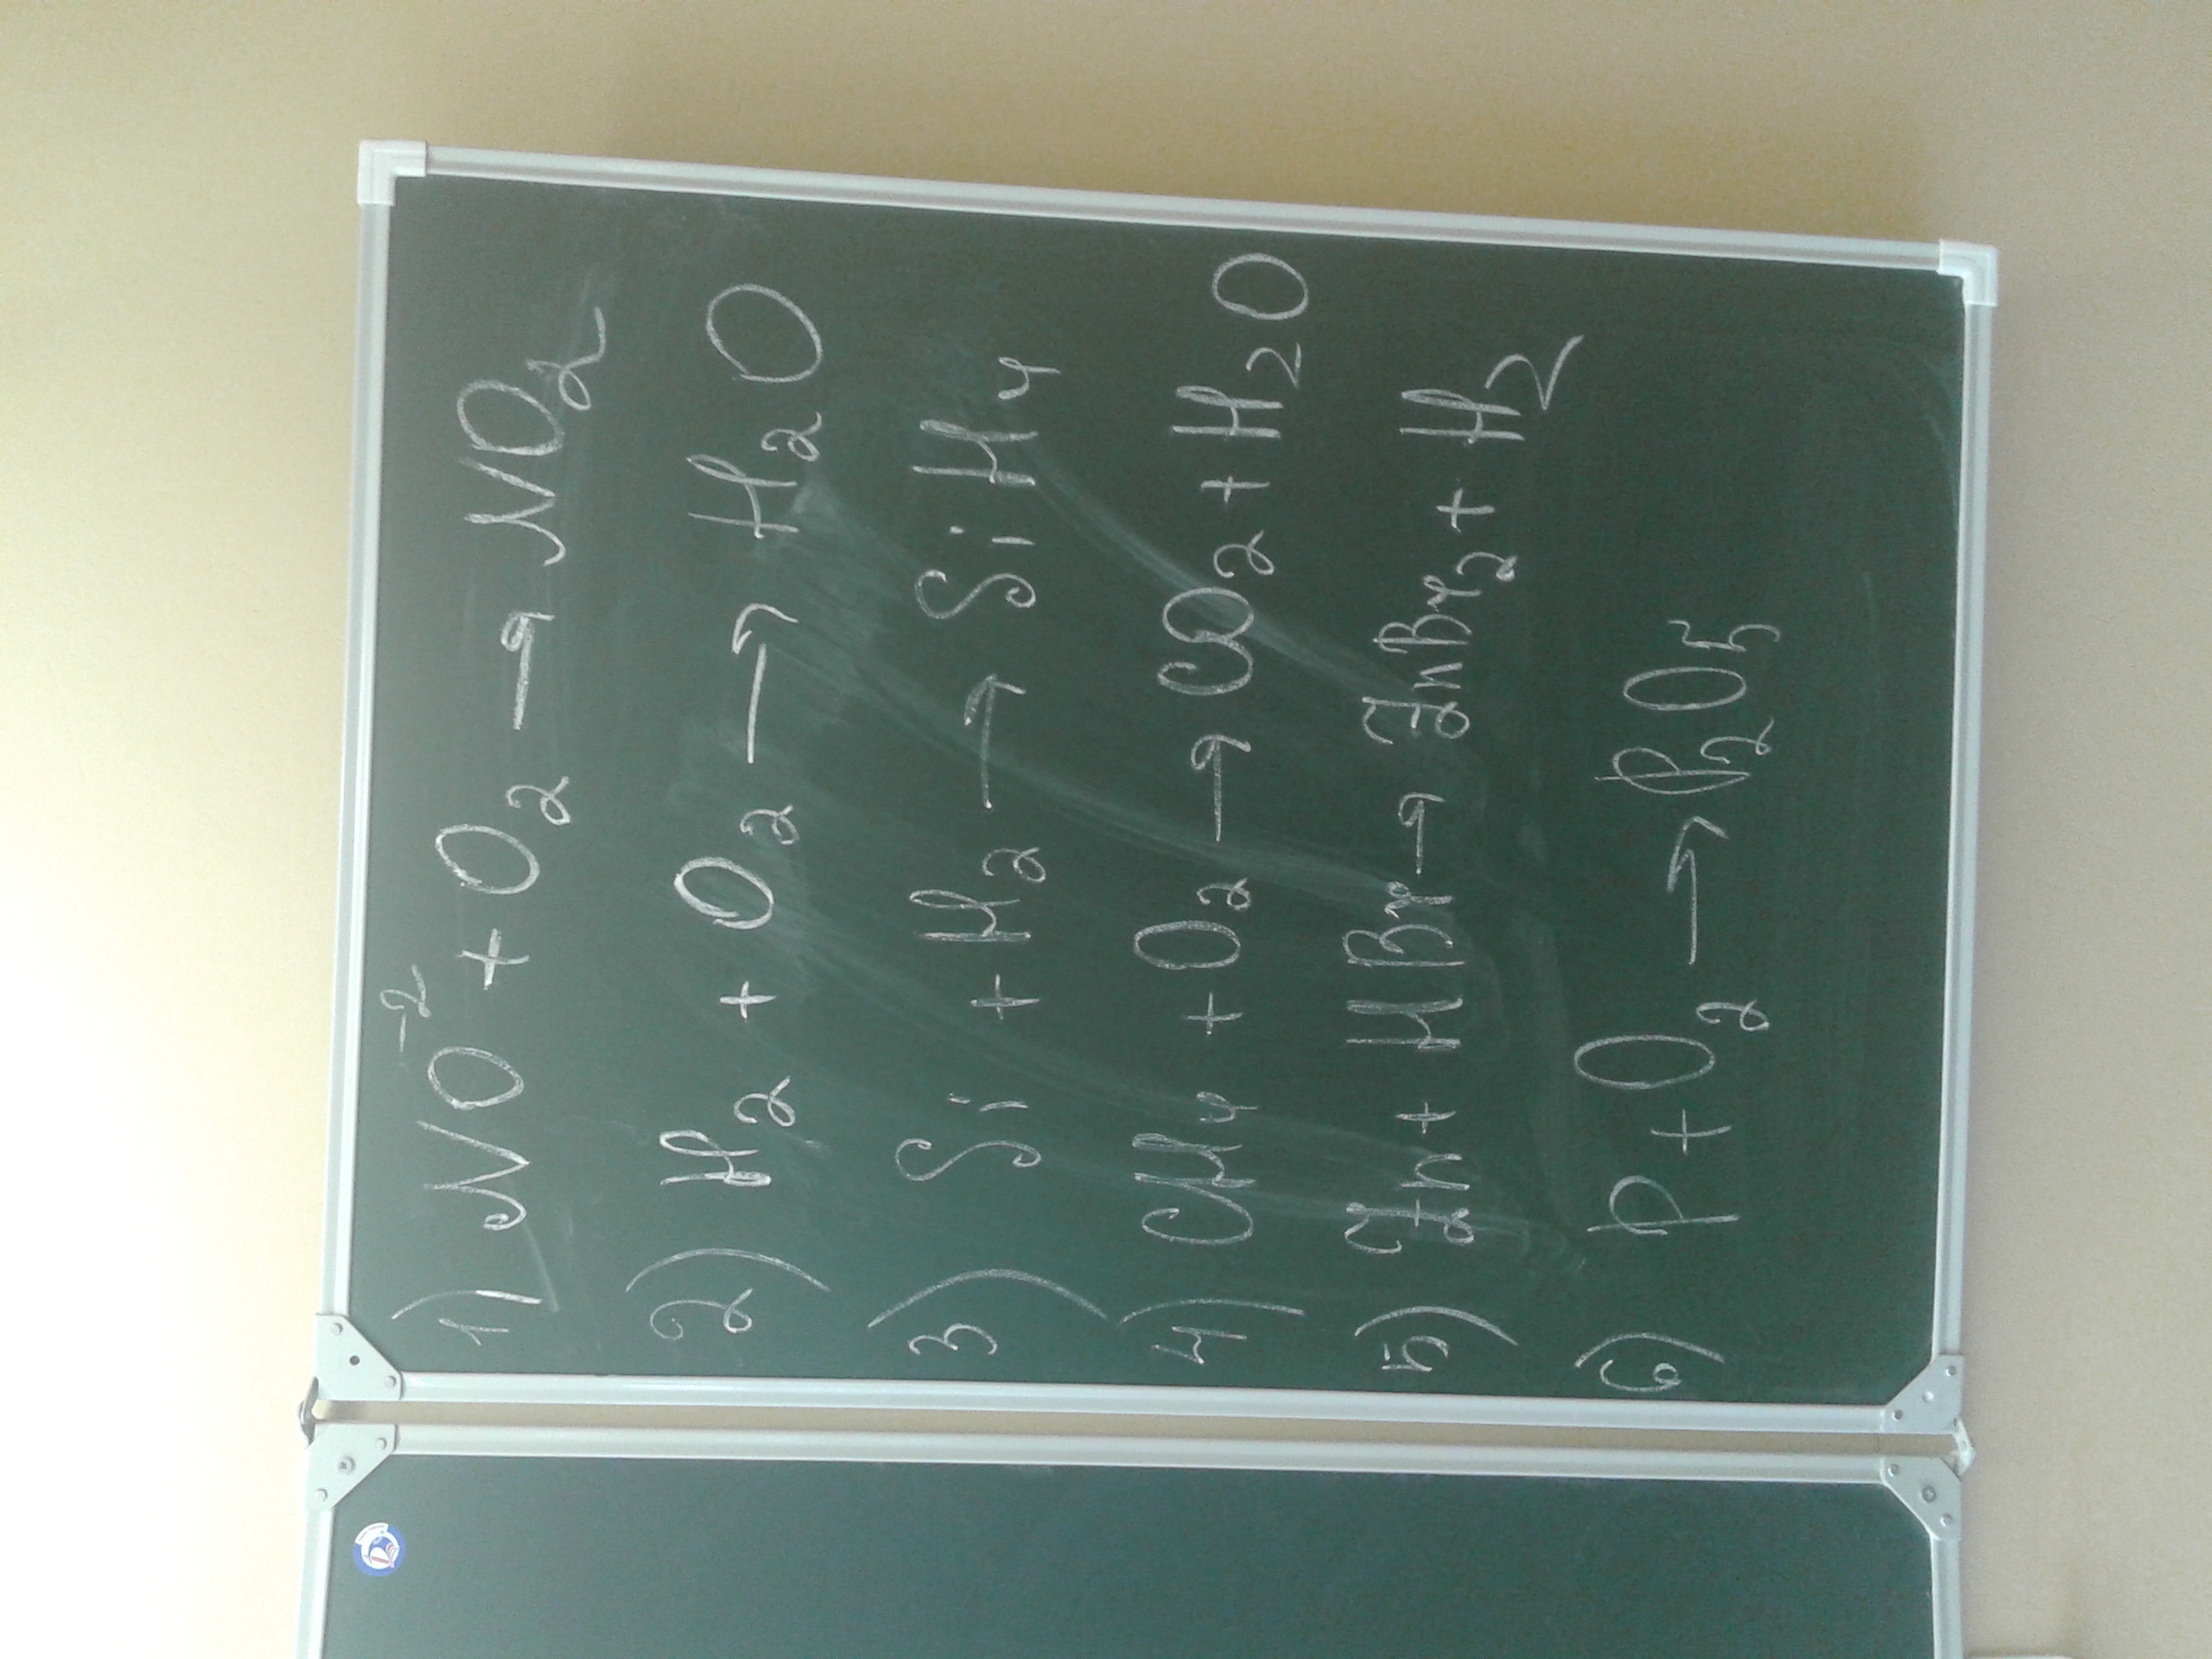 1) NO⁻² + O₂ → NO₂
2) H₂ + O₂ → H₂O
3) Si + H₂ → SiH₄
4) CH₄ + O₂ → CO₂ + H₂O
5) Zn + HBr → ZnBr₂ + H₂
6) P + O₂ → P₂O₅